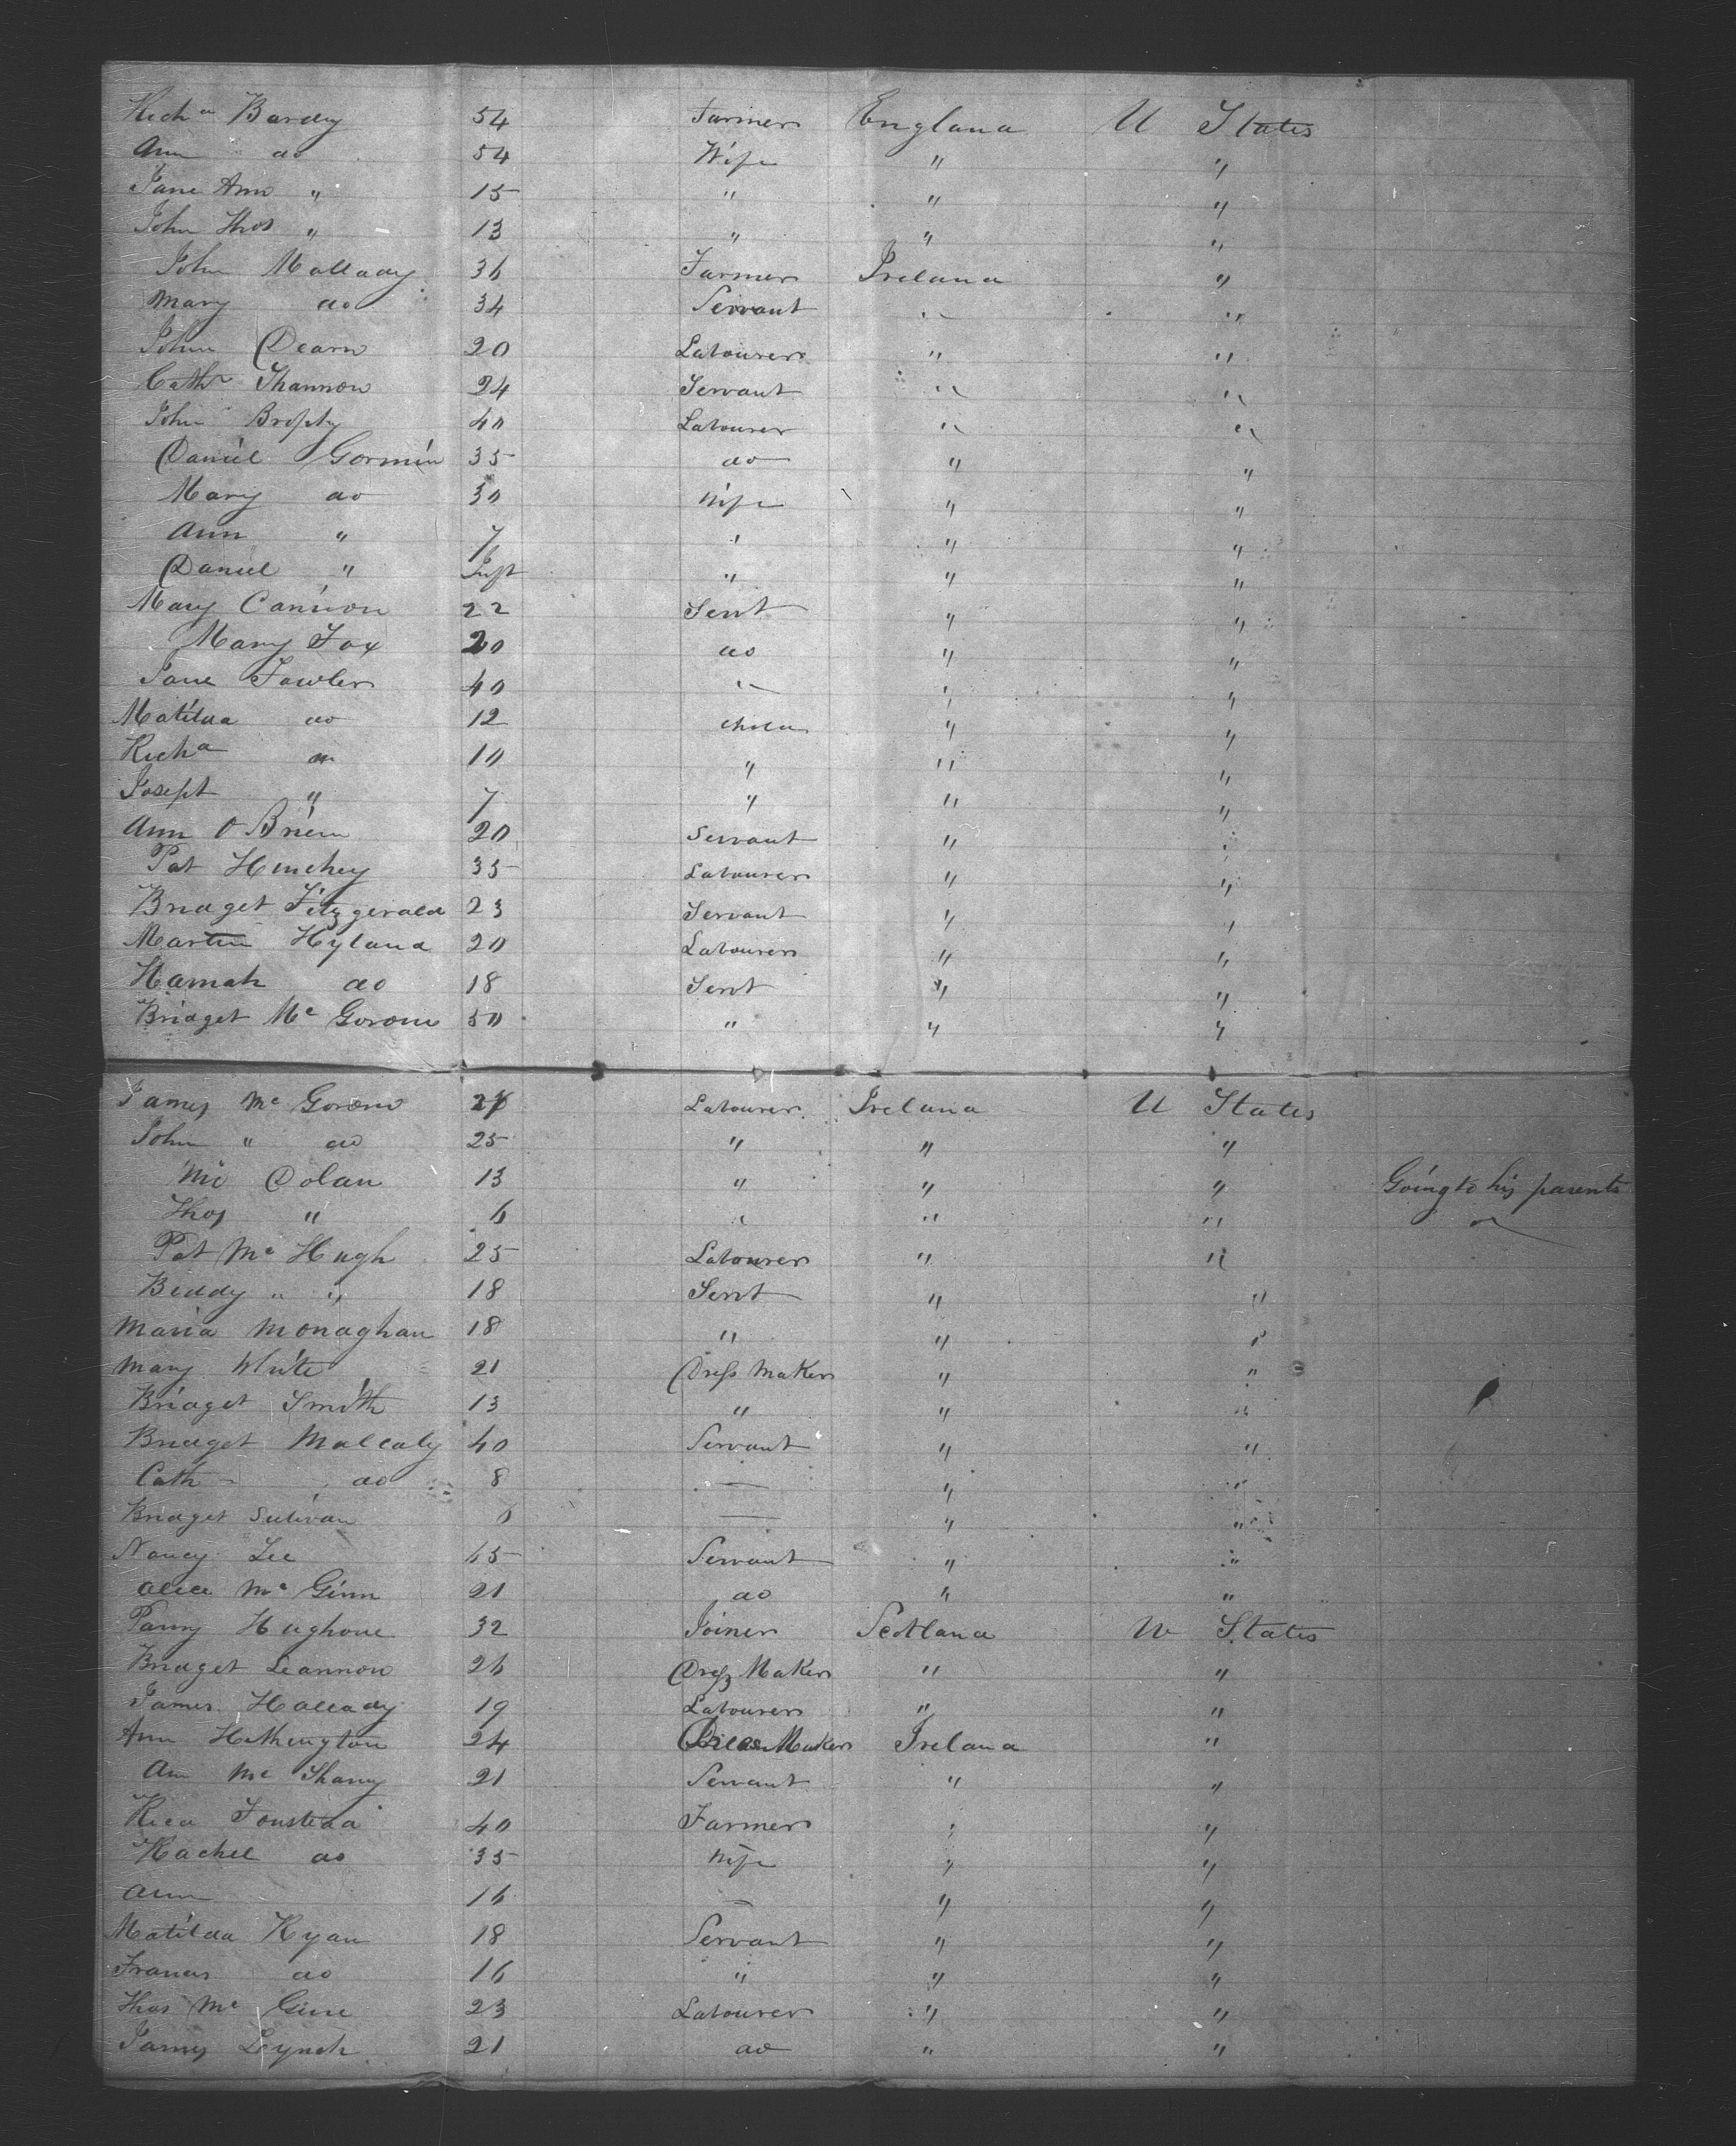 Richd Bardy 54 Farmer England U States
Ann do 54 Wife " "
Jane Ann " 15 " " "
John Thos " 13 " " "
John Mallady 36 Farmer Ireland "
Mary do 34 Servant " "
John Dearn 20 Labourer " "
Cathr Shannon 24 Servant " "
John Brophy 40 Labourer " "
Daniel Gormin 35 do " "
Mary do 30 Wife " "
Ann " 7 " " "
Daniel " Inft " " "
Mary Cannon 22 Servt " "
Mary Fox 20 do " "
Jane Fowler 40 " " "
Matilda do 12 child " "
Richd do 10 " " "
Joseph " 7 " " "
Ann O Brien 20 Servant " "
Pat Hinchey 35 Labourer " "
Bridget Fitzgerald 23 Servant " "
Martin Hyland 20 Labourer " "
Hannah do 18 Servt " "
Bridget Mc Gorom 50 " " "
James Mc Gorom 27 Labourer Ireland U States
John " do 25 " " "
Mi Dolan 13 " " " Going to his parents
Thos " 6 " " " do
Pat Mc Hugh 25 Labourer " "
Biddy " " 18 Servt " "
Maria Monaghan 18 " " "
Mary White 21 Dress Maker " "
Bridget Smith 13 " " "
Bridget Malcaly 40 Servant " "
Cath do 8 — " "
Bridget Sulivan — " "
Nancy Lee 65 Servant " "
Alice Mc Ginn 21 do " "
Hughone 32 Joiner Scotland U States
Bridget Leannon 26 Dress Maker " "
James Hallady 19 Labourer " "
Ann Hethington 24 Dress Maker Ireland "
Ann Mc Shany 21 Servant " "
Ricd 40 Farmer " "
Rachel do 35 Wife " "
Ann 16 — " "
Matilda Ryan 18 Servant " "
Francis do 16 " " "
Thos Mc Gine 23 Labourer " "
James Lynch 21 do " "